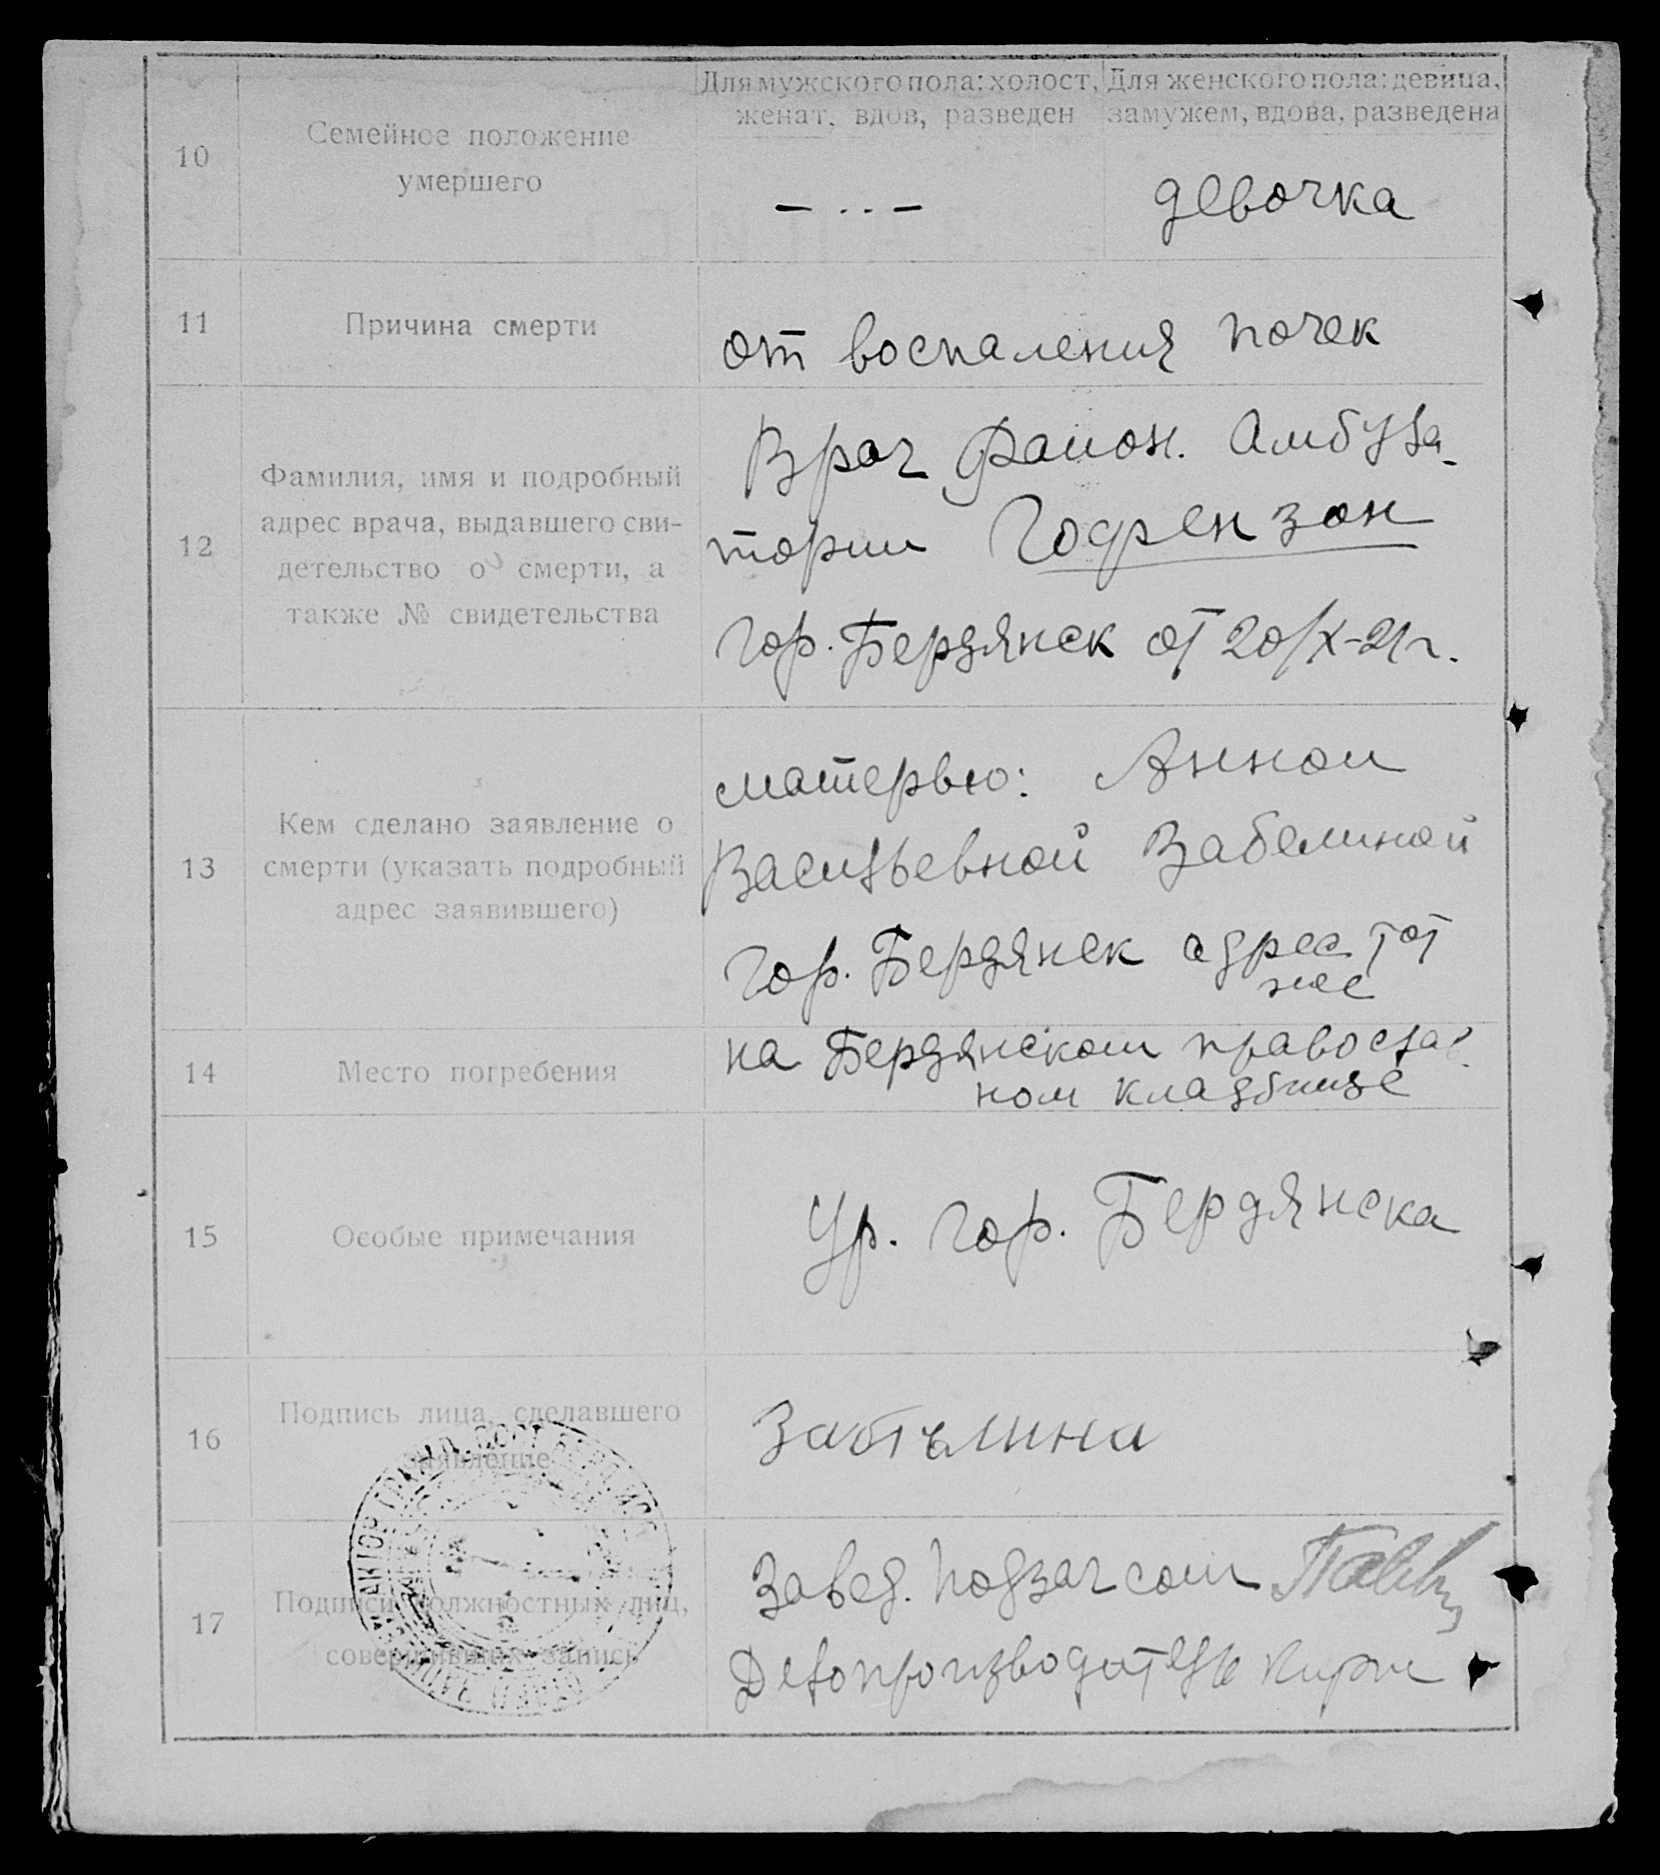 10
Семейное положение
умершего
Для мужского пола: холост,
женат, вдов, разведен
Для женского пола: девица,
замужем, вдова, разведена
девочка
11
Причина смерти
от воспаления почек
12
Фамилия, имя и подробный
адрес врача, выдавшего сви-
детельство о смерти, а
также № свидетельства
Врач Район. Амбула-
тории Гофрензон
гор. Бердянск от 20/X-21г.
13
Кем сделано заявление о
смерти (указать подробный
адрес заявившего)
матерью: Анной
Васильевной Забелиной
гор. Бердянск адрес тот
же
14
Место погребения
на Бердянском православ
ном кладбище
15
Особые примечания
Ур. гор. Бердянска
16
Подпись лица, сделавшего
заявление
Забѣлина
17
Подписи должностных лиц,
совершивших запись
Завед. подзагсом
Делопроизводитель